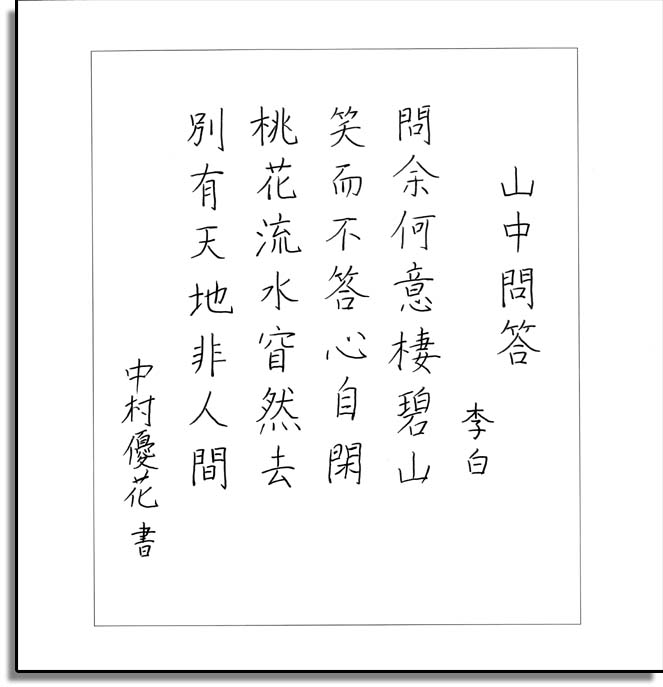 山中問答
李白
問余何意棲碧山
笑而不答心自閑
桃花流水窅然去
別有天地非人間
中村優花書